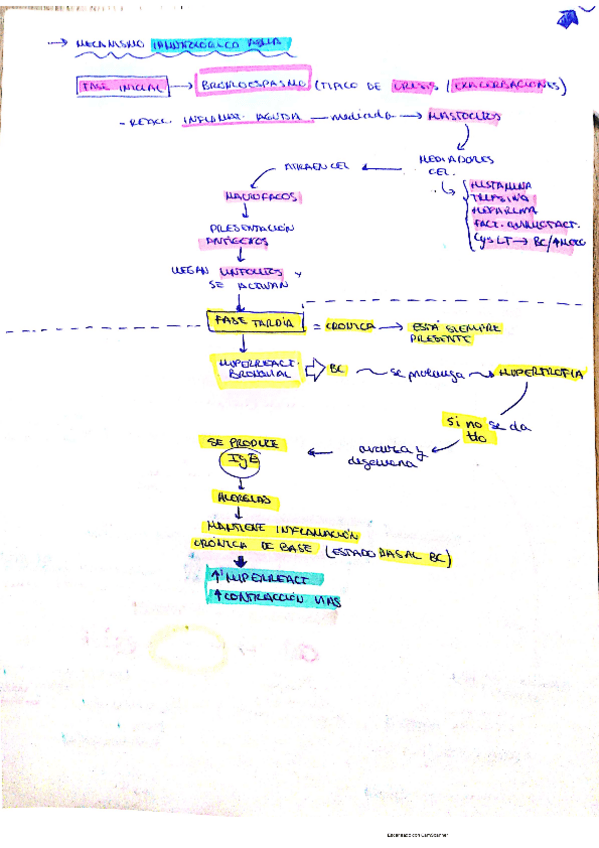 → MECANISMO INMUNOLÓGICO ASMA
FASE INICIAL → BRONCOESPASMO (TIPICO DE CRISIS / EXACERBACIONES)
- REACC. INFLAMAT. AGUDA — mediada → MASTOCITOS
MEDIADORES
CEL.
HISTAMINA
TRIPSINA
HEPARINA
FACT. QUIMIOTACT.
CysLT → BC/↑MOCO
ATRAEN CEL
MACROFAGOS
PRESENTACIÓN
ANTÍGENOS
LLEGAN LINFOCITOS Y
SE ACTIVAN
FASE TARDÍA = CRONICA → ESTÁ SIEMPRE
PRESENTE
HIPERREACT.
BRONQUIAL ⇒ BC → se prolonga → HIPERTROFIA
si no se da
tto
avanza y
degenera
SE PRODUCE
IgE
ALERGIAS
MANTIENE INFLAMACIÓN
CRÓNICA DE BASE (ESTADO BASAL BC)
↑ HIPERREACT
↑ CONTRACCIÓN VIAS
Escaneado con CamScanner